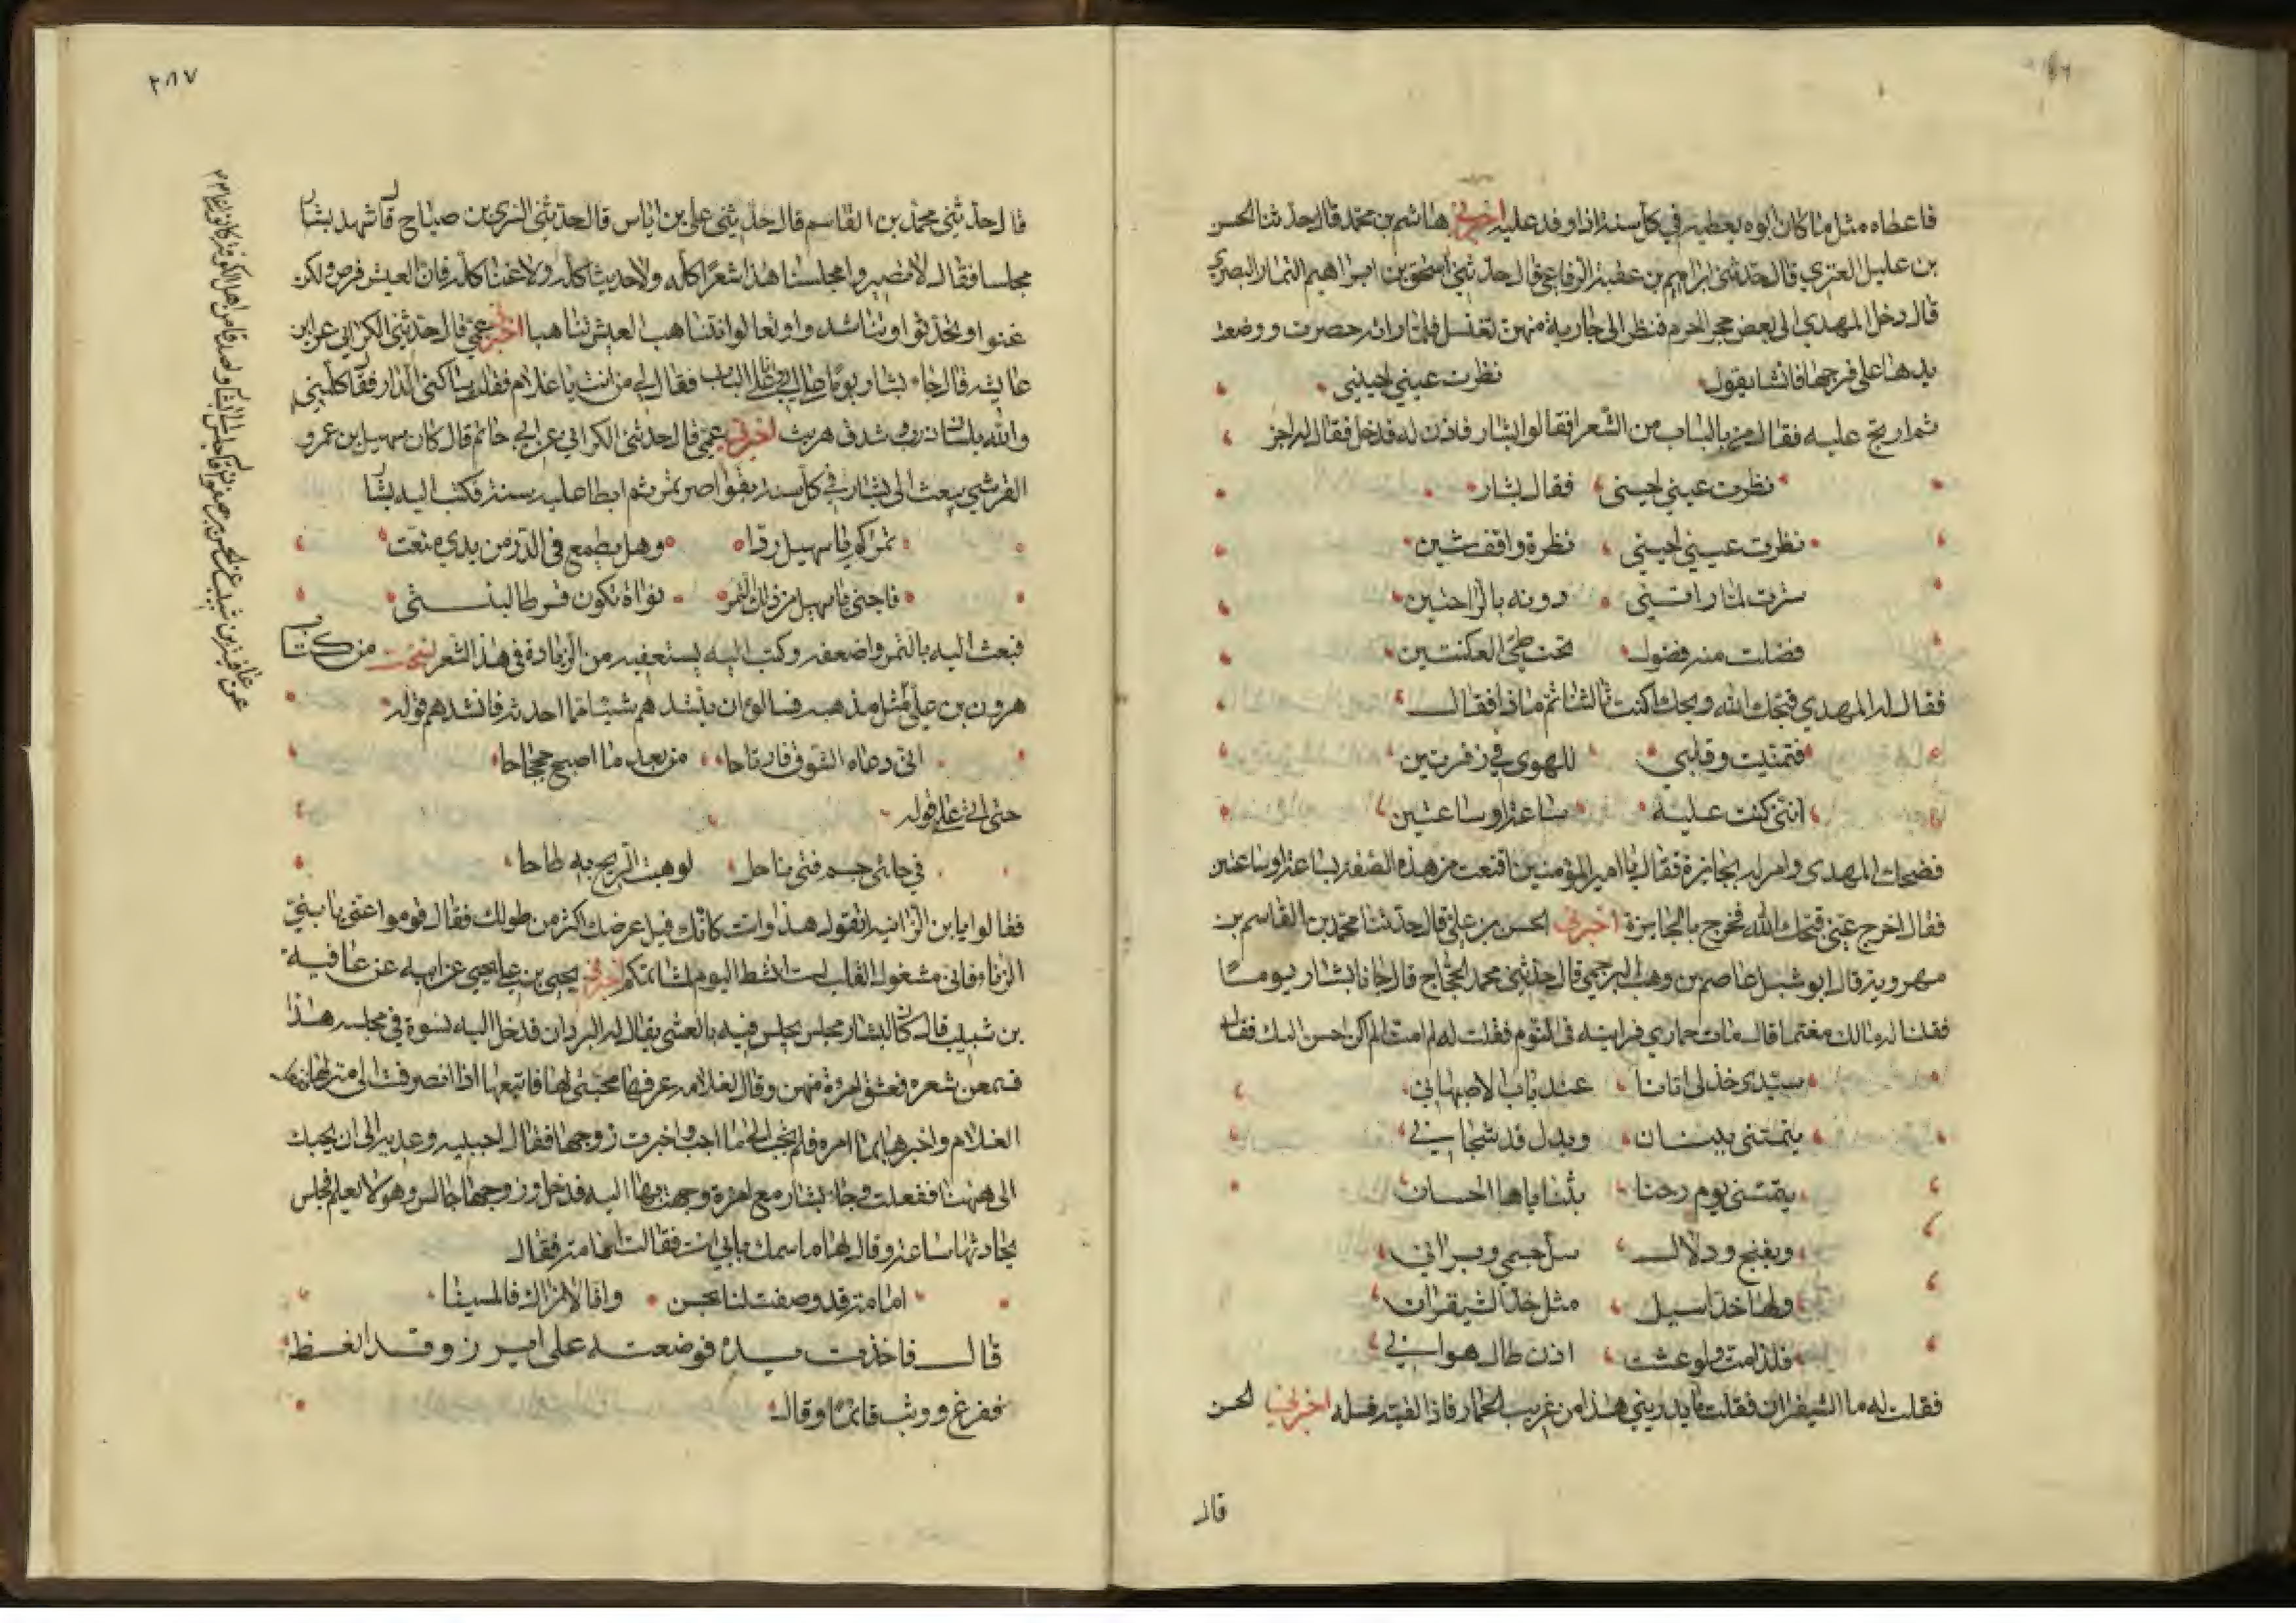 فاعطاه مثل ما كان ابوه يعطيه في كل سنة اذا وفد عليه اخبرني هاشم بن محمد قال حدثنا الحسن
بن عليل العنزي قال حدثني ابراهيم بن عقبة الرفاعي قال حدثني اسحق بن ابراهيم التمار البصري
قال دخل المهدي الى بعض حجر الحرم فنظر الى جارية منهن تغتسل فلما راته حصرت ووضعت
يدها على فرجها فانشا يقول نظرت عيني لحيني
ثم ارتج عليه فقال من بالباب من الشعرا فقالوا بشار فاذن له فدخل فقال له اجز
نظرت عيني لحيني فقال بشار
نظرت عيني لحيني نظرة وافقت شين
سترت لما راتني دونه بالراحتين
فضلت منه فضول تحت طي العكنتين
فقال له المهدي قبحك الله ويحك اكنت ثالثنا ثم ماذا فقال
فتمنيت وقلبي للهوى في زفرتين
انني كنت عليه ساعة او ساعتين
فضحك المهدي وامر له بجايزة فقال يا امير المؤمنين اقنعت من هذه الصفة بساعة او ساعتين
فقال اخرج عني قبحك الله فخرج بالجايزة اخبرني الحسن بن علي قال حدثنا محمد بن القاسم بن
مهروية قال ابو شبل عاصم بن وهب البرجمي قال حدثني محمد الحجاج قال جانا بشار يوما
فقلنا له مالك مغتما قال مات حماري فرايته في النوم فقلت له لم امت الم اكن احسن اليك فقال
سيدي خذ لي اتانا عند باب الاصبهاني
يتمتني ببنان وبدل قد شجاني
يتمتني يوم رحنا بثناياها الحسان
وبغنج ودلال سل جسمي وبراني
ولها خد اسيل مثل خد الشيقران
فلذا مت ولو عشت اذن طال هواني
فقلت له ما الشيقران فقلت ما يدريني هذا من غريب الحمار فاذا لقيته فسله اخبرني الحسن
قال
٢٨٧
قال حدثني محمد بن القاسم قال حدثني علي بن اياس قال حدثني السري بن صباح قال شهد بشار
مجلسا فقال لا تصيروا مجلسنا هذا شعرا كله ولا حديثا كله ولا غنا كله فان العيش فرص ولكن
غنوا وتحدثوا وتناشدوا وتعالوا نتناهب العيش تناهبا اخبرني عمي قال حدثني الكراني عن ابن
عايشة قال جاء بشار يوما الى ابي على الباب فقال لي من انت يا غلام فقلت من ساكني الدار فقال كلمني
والله بلسان ذرب وشدق هريت اخبرني عمي قال حدثني الكراني عن ابي حاتم قال كان سهيل بن عمرو
القرشي يبعث الى بشار في كل سنة بقواصر تمر ثم ابطا عليه سنة فكتب اليه بشار
تمركم يا سهيل در وهل يطمع في الدر من يدي متعت
فاحبني يا سهيل من ذلك التمر نواة تكون قرطا لبنتي
فبعث اليه بالتمر واضعفه وكتب اليه يستعفيه من الزيادة في هذا الشعر نسخت من كتاب
هرون بن علي مثل مذهبه فسالوه ان ينشدهم شيئا مما احدثه فانشدهم قوله
انى دعاه الشوق فارتاحا من بعد ما اصبح جحجاحا
حتى اتى على قوله
في حلتي جسم فتى ناحل لو هبت الريح به طاحا
فقالوا يا ابن الزانية اتقول هذا وانت كانك فيل عرضك اكثر من طولك فقال قوموا عني يا بني
الزناء فاني مشغول القلب لست انشط اليوم لمشاتمتكم اخبرني يحيى بن علي يحيى عن ابيه عن عافية
بن شبيب قال كان لبشار مجلس يجلس فيه بالعشي يقال له البردان فدخل اليه نسوة في مجلسه هذا
فسمعن شعره فعشق امرة منهن وقال لغلامه عرفها محبتي لها فاتبعها اذا انصرفت الى منزلها ففعل
الغلام واخبرها بما امره فلم تجبه الى ما احب واخبرت زوجها فقال اجيبيه وعديه الى ان يجيك
الى ههنا ففعلت وجاء بشار مع امرة وجهت بها اليه فدخل وزوجها جالس وهو لا يعلم فجلس
يحادثها ساعة وقال لها ما اسمك بابي انت فقالت امامة فقال
امامة قد وصفت لنا بحسن وانا لا نراك فالمسينا
قال فاخذت يده فوضعته على اير زوجها وقد انعظ
ففزع ووثب قائما وقال